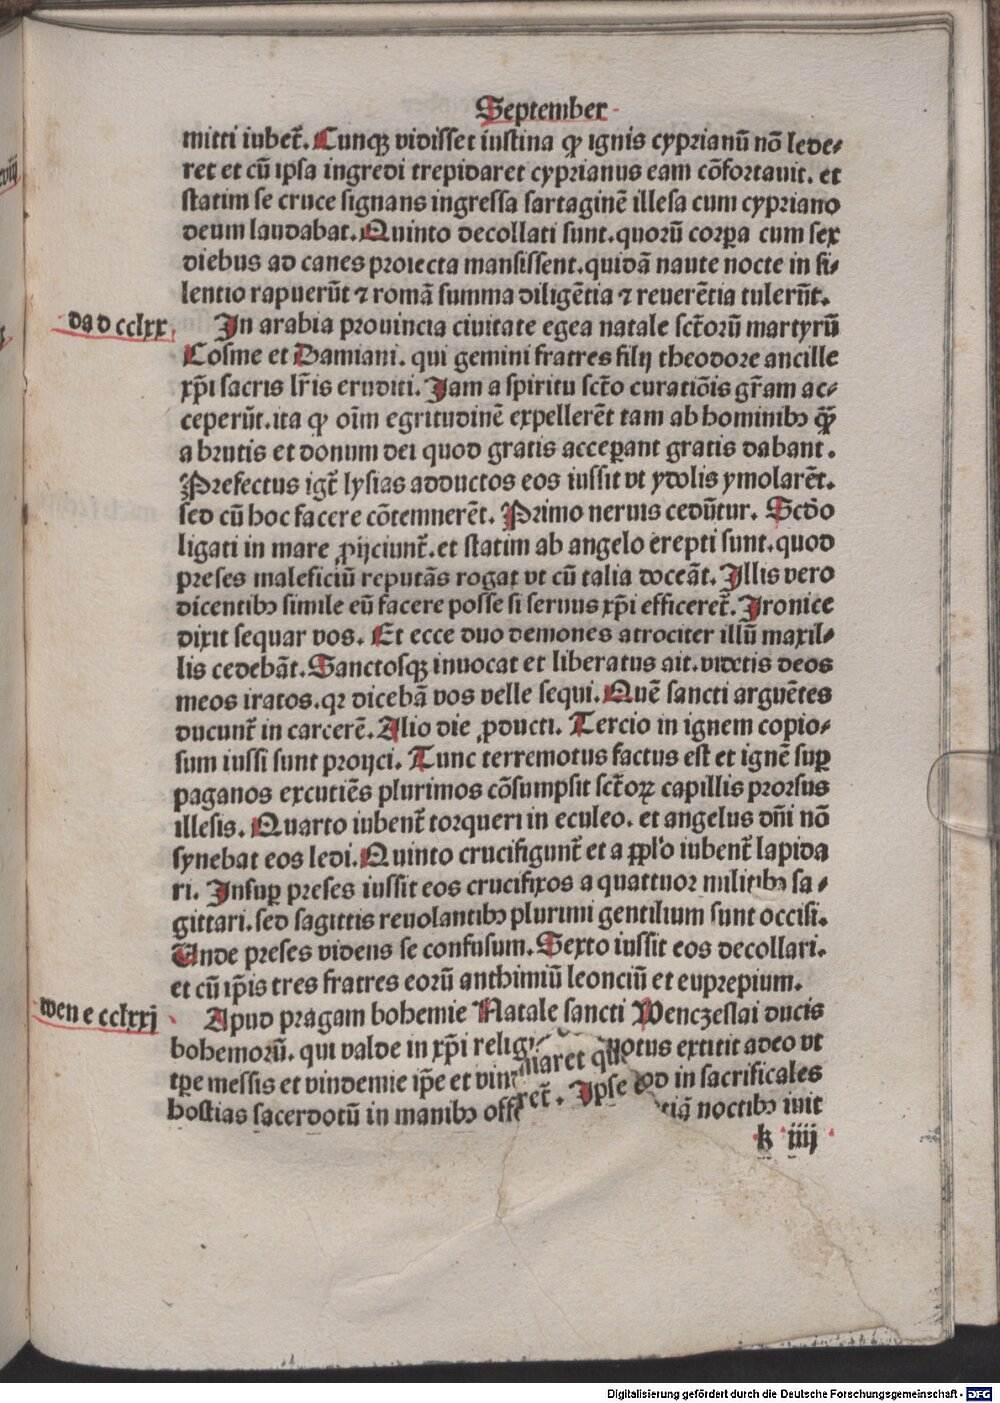 September
mitti iubet̄. Cunqꝫ vidisset iustina ꝙ ignis cyprianū nō lede⸗
ret et cū ipsa ingredi trepidaret cyprianus eam cōfortauit. et
statim se cruce signans ingressa sartaginē illesa cum cypriano
deum laudabat. Quinto decollati sunt. quorū corꝑa cum sex
diebus ad canes proiecta mansissent. quidā naute nocte in si⸗
lentio rapuerūt ⁊ romā summa diligētia ⁊ reuerētia tulerūt.
da d cclxx
In arabia prouincia ciuitate egea natale sct̄orū martyrū
Cosme et Damiani. qui gemini fratres filij theodore ancille
xp̄i sacris lr̄is eruditi. Jam a spiritu sct̄o curatiōis gr̄am ac⸗
ceperūt. ita ꝙ oīm egritudinē expellerēt tam ab hominibꝰ ꝙ̄
a brutis et donum dei quod gratis acceꝑant gratis dabant.
Prefectus igt̄ lysias adductos eos iussit vt ydolis ymolarēt.
sed cū hoc facere cōtemnerēt. Primo neruis cedūtur. Scd̄o
ligati in mare ꝓijciunt̄. et statim ab angelo erepti sunt. quod
preses maleficiū reputās rogat vt cū talia doceāt. Illis vero
dicentibꝰ simile eū facere posse si seruus xp̄i efficeret̄. Ironice
dixit sequar vos. Et ecce duo demones atrociter illū maxil⸗
lis cedebāt. Sanctosqꝫ inuocat et liberatus ait. videtis deos
meos iratos. qꝛ dicebā vos velle sequi. Quē sancti arguētes
ducunt̄ in carcerē. Alio die ꝓducti. Tercio in ignem copio⸗
sum iussi sunt proijci. Tunc terremotus factus est et ignē suꝑ
paganos excutiēs plurimos cōsumpsit sct̄oꝝ capillis prorsus
illesis. Quarto iubent̄ torqueri in eculeo. et angelus dn̄i nō
synebat eos ledi. Quinto crucifigunt̄ et a ꝑpl̓o iubent̄ lapida
ri. Insuꝑ preses iussit eos crucifixos a quattuor militibꝰ sa⸗
gittari. sed sagittis reuolantibꝰ plurimi gentilium sunt occisi.
Unde preses videns se confusum. Sexto iussit eos decollari.
et cū ip̄is tres fratres eorū anthimiū leonciū et euprepium.
wen e cclxxj
Apud pragam bohemie Natale sancti Wenczeslai ducis
bohemorū. qui valde in xp̄i relig otus extitit adeo vt
tꝑe messis et vindemie ip̄e et vin maret qu od in sacrificales
hostias sacerdotū in manibꝰ offe ret̄. Ipse tiā noctibꝰ iuit
k iiij
Digitalisierung gefördert durch die Deutsche Forschungsgemeinschaft - DFG